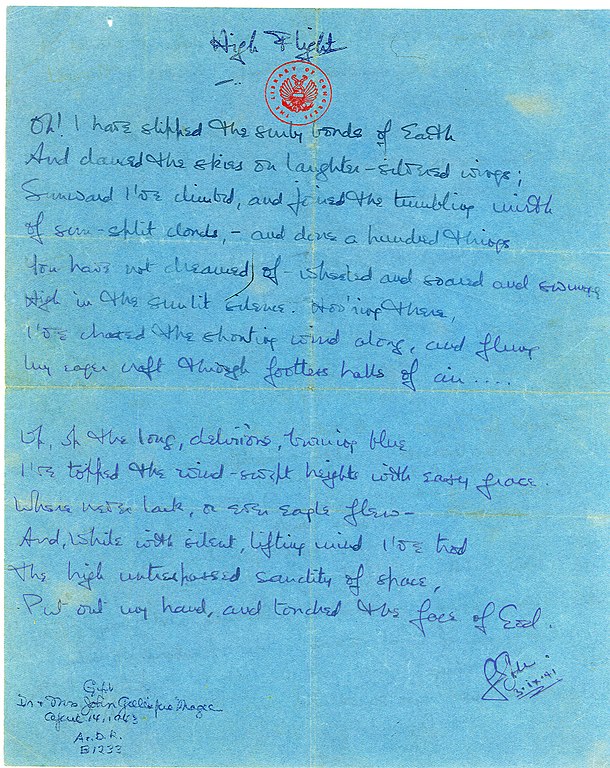 High Flight
THE LIBRARY OF CONGRESS
Oh! I have slipped the surly bonds of Earth
And danced the skies on laughter-silvered wings;
Sunward I've climbed, and joined the tumbling mirth
of sun-split clouds, - and done a hundred things
You have not dreamed of - wheeled and soared and swung
High in the sunlit silence. Hov'ring there,
I've chased the shouting wind along, and flung
My eager craft through footless halls of air ....
Up, up the long, delirious, burning blue
I've topped the wind-swept heights with easy grace.
Where never lark, or even eagle flew -
And, while with silent, lifting mind I've trod
The high untrespassed sanctity of space,
Put out my hand, and touched the face of God.
3.IX.41
Gift
Dr + Mrs John Gillespie Magee
April 14, 1943
Ac.D.R.
E1233